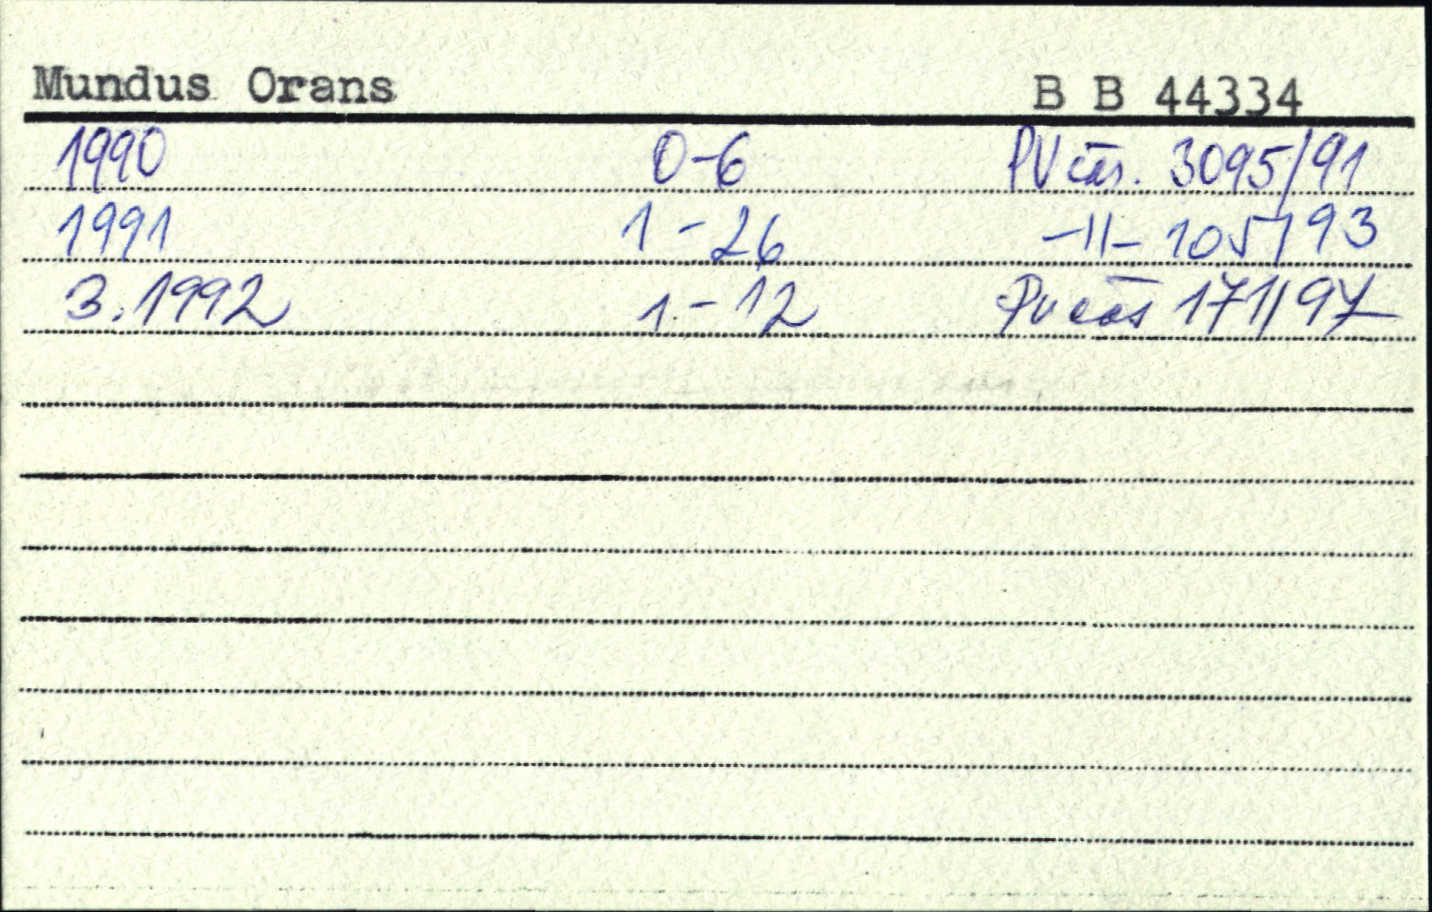 Mundus Orans B B 44334
1990 0-6 PV čas. 3095/91
1991 1-26 -II- 105/93
3.1992 1-12 PV čas 171/97